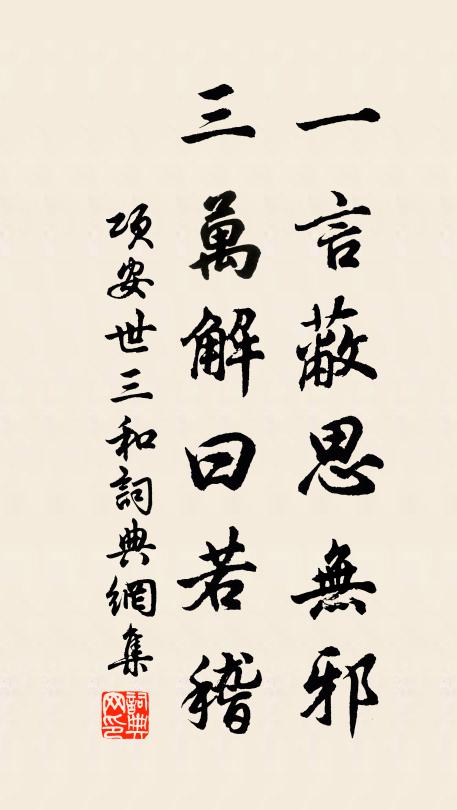 一言蔽思無邪
三萬解曰若稽
項安世三和詞典網集
詞典
网印